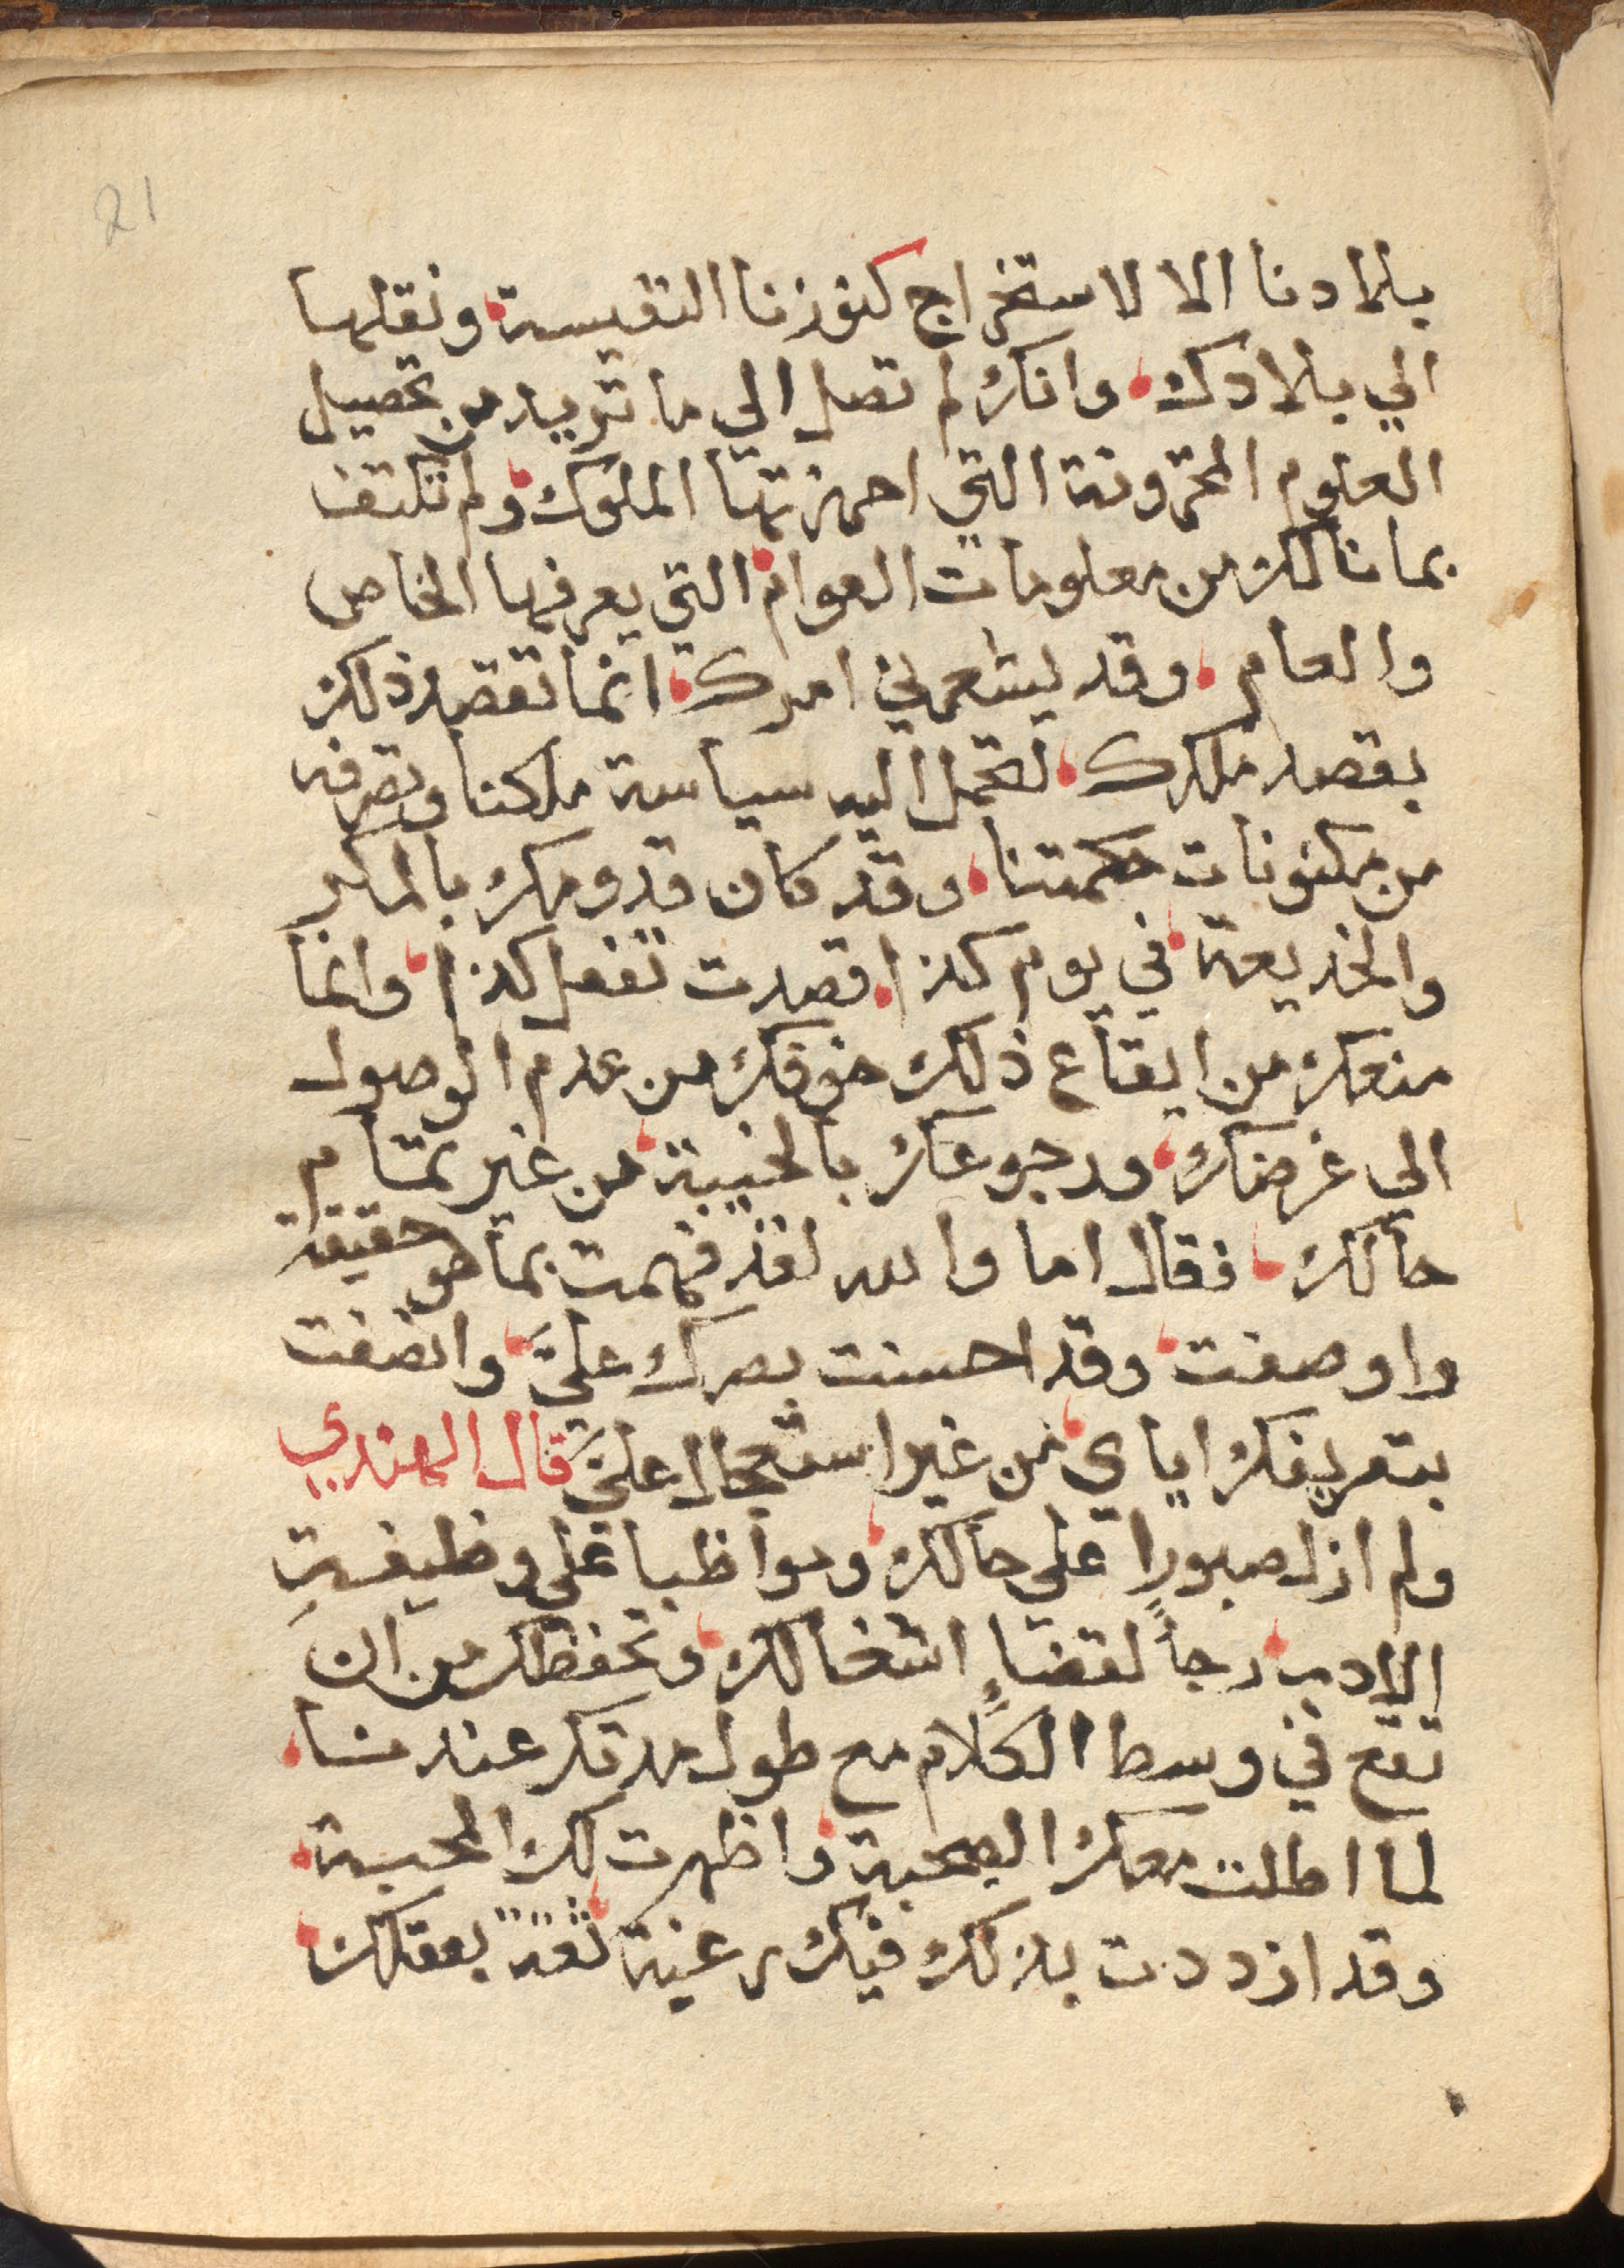 21
ببلادنا الا لاستخراج كنوزنا النفيسة ونقلها
الي بلادك وانك لم تصل الي ما تريد من تحصيل
العلوم المخزونة التي احرزتها الملوك ولم تكتف
بما نالك من معلومات العوام التي يعرفها الخاص
والعام وقد يشعرني امرك انما تقصد ذلك
بقصد ملكك لتحمل اليه سياسة ملكنا وتعرفه
من مكنونات حكمتنا وقد كان قدومك بالمكر
والخديعة في يوم كذا قصدت تفعل كذا وانما
منعك من ايقاع ذلك خوفك من عدم الوصول
الي غرضك ورجوعك بالخيبة من غير تمام
حالك فقال اما والله لقد فهمت بما هو حقيقة
واوصفت وقد احسنت بصرك عليّ وانصفت
بتعريفك اياي من غير استعجال عليّ قال الهندي
ولم ازل صبورا علي حالك ومواظبا علي وظيفة
الادب رجاً لقضاءٍ اشغالك وتحفظك من ان
تقع في وسط الكلام مع طول مدتك عندنا
لما اطلت معك الصحبة واظهرت لك المحبة
وقد ازددت بذلك فيك رغبة ثقةً بعقلك